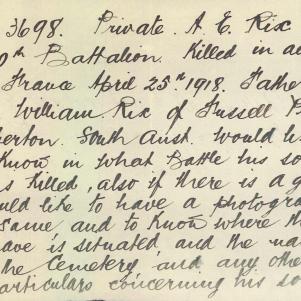 3698. Private A. E. Rix
0th Battalion. Killed in ac
France April 25th 1918. Father
William Rix of Fussell
berton. South Aust. would li
know in what Battle his so
s killed, also if there is a g
uld like to have a photogra
same, and to know where th
ave is situated, and the na
the Cemetery, and any othe
articulars concerning his so